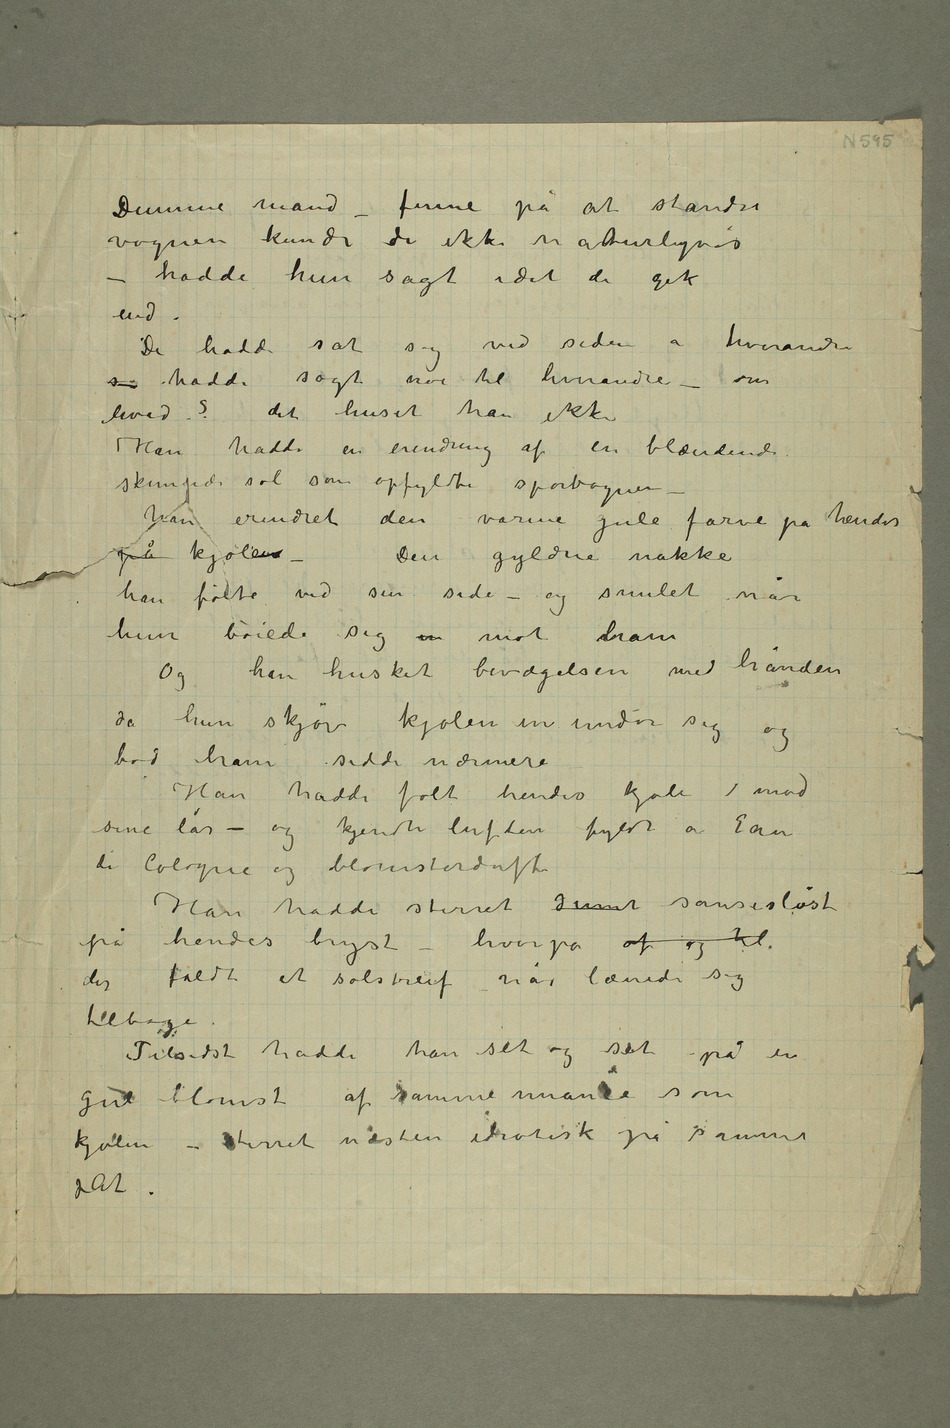 N 595
Dumme mand – finne på at standse
vognen kunde de ikke naturligvis
– hadde hun sagt idet de gik
ind.
De hadde sat sig ved siden a hverandre
så hadde sagt noe til hverandre – om
hvad? det huset han ikke
Han hadde en erindring af en blændende
skinnende sol som opfyldte sporvognen –
han erindret den varme gule farve på hendes
på kjolens – Den gyldne nakke
han følte ved sin side – og smilet når
hun böiede sig in mot ham
Og han husket bevægelsen med hånden
da hun skjøv kjolen in under sig og
bød ham sidde nærmere
Han hadde følt hendes kjole mod
sine lår – og kjendte luften fyldt a Eau
de Cologne og blomsterduft
Han hadde stirret dumt sanseslöst
på hendes bryst – hvorpå af og til
der faldt et solstreif når lænede sig
tilbage.
Tilsidst hadde han set og set på en
gul blomst af samme nuance som
kjolen – stirret næsten idiotisk på samme
plet.